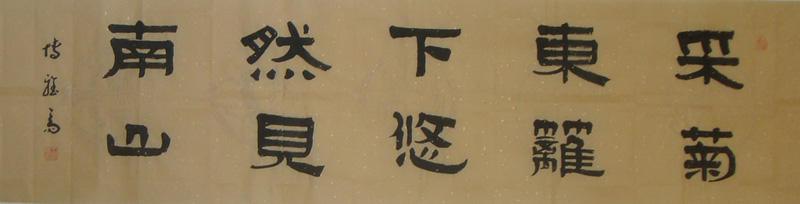 采菊
東籬
下悠
然見
南山